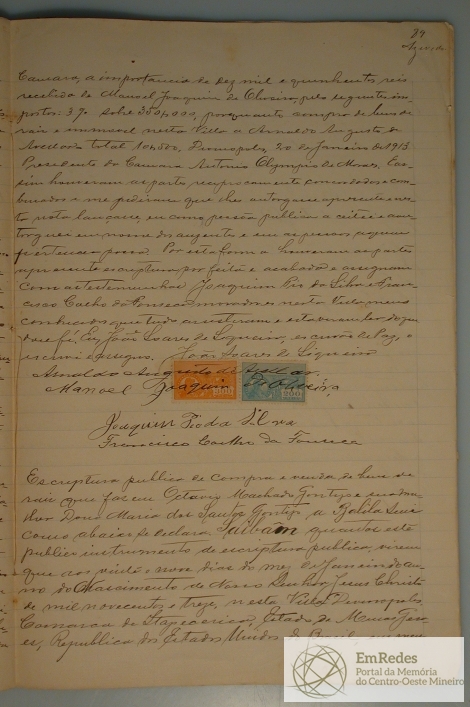 89
Camara, a importancia de dez mil e quinhentos reis
recebida de Manoel Joaquim de Oliveira, pelo seguinte im-
postos: 3% sobre 350$000, porquanto comprou de bens de
raiz e immovel nesta Villa a Arnaldo Augusto de
total 10$500. Divinopolis, 20 de Janeiro de 1913
Presidente da Camara Antonio Olympio de Moraes. E as-
sim houveram as partes reciprocamente concordados e com-
binados e me pediram que lhes outorgasse a presente e nes-
ta nota lançasse, eu como pessoa publica a aceitei e ou-
torguei em nome dos ausentes e em as pessoas a quem
pertencer possa. Por esta forma a houveram as partes
a presente escriptura por feita e acabada e assignam
com as testemunhas Joaquim Pio da Silva e Fran-
cisco Coelho da Fonseca moradores nesta Villa, meus
conhecidos que tudo assistiram e estiveram ler do que
dou fé. Eu, João Soares de Siqueira, escrivão de Paz, o
escrevi e assigno. João Soares de Siqueira
Arnaldo Augusto de
Manoel Joaquim de Oliveira,
200
200
Joaquim Pio da Silva
Francisco Coelho da Fonseca
Escriptura publica de compra e venda de bens de
raiz que fazem Octavio Machado Gontijo e sua mu-
lher Dona Maria dos Santos Gontijo a
como abaixo se declara. Saibam quantos este
publico instrumento de escriptura publica virem
que aos vinte e nove dias do mez de Janeiro do an-
no do Nascimento de Nosso Senhor Jesus Christo
de mil novecentos e treze, nesta Villa Divinopolis,
Comarca de Itapecerica, Estado de Minas Gera-
es, Republica dos Estados Unidos do Brasil, em meu
EmRedes
Portal da Memória
do Centro-Oeste Mineiro